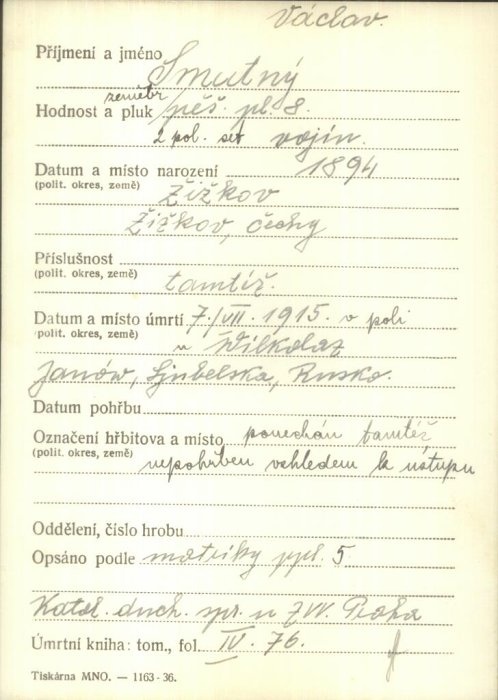 Václav.
Příjmení a jméno Smutný
zeměbr.
Hodnost a pluk pěš. pl. 8.
2 pol. set vojín.
Datum a místo narození 1894
(polit. okres, země) Žižkov
Žižkov, Čechy
Příslušnost
(polit. okres, země) tamtéž.
Datum a místo úmrtí 7./VII. 1915. v poli
(polit. okres, země) u Wilkolaz
Janów, Ljubelska, Rusko.
Datum pohřbu
Označení hřbitova a místo ponechán tamtéž,
(polit. okres, země) nepohřben vzhledem k ústupu
Oddělení, číslo hrobu
Opsáno podle matriky ppl. 5
Katol. duch. spr. u ZVV. Praha
Úmrtní kniha: tom., fol. IV. 76.
Tiskárna MNO. — 1163-36.